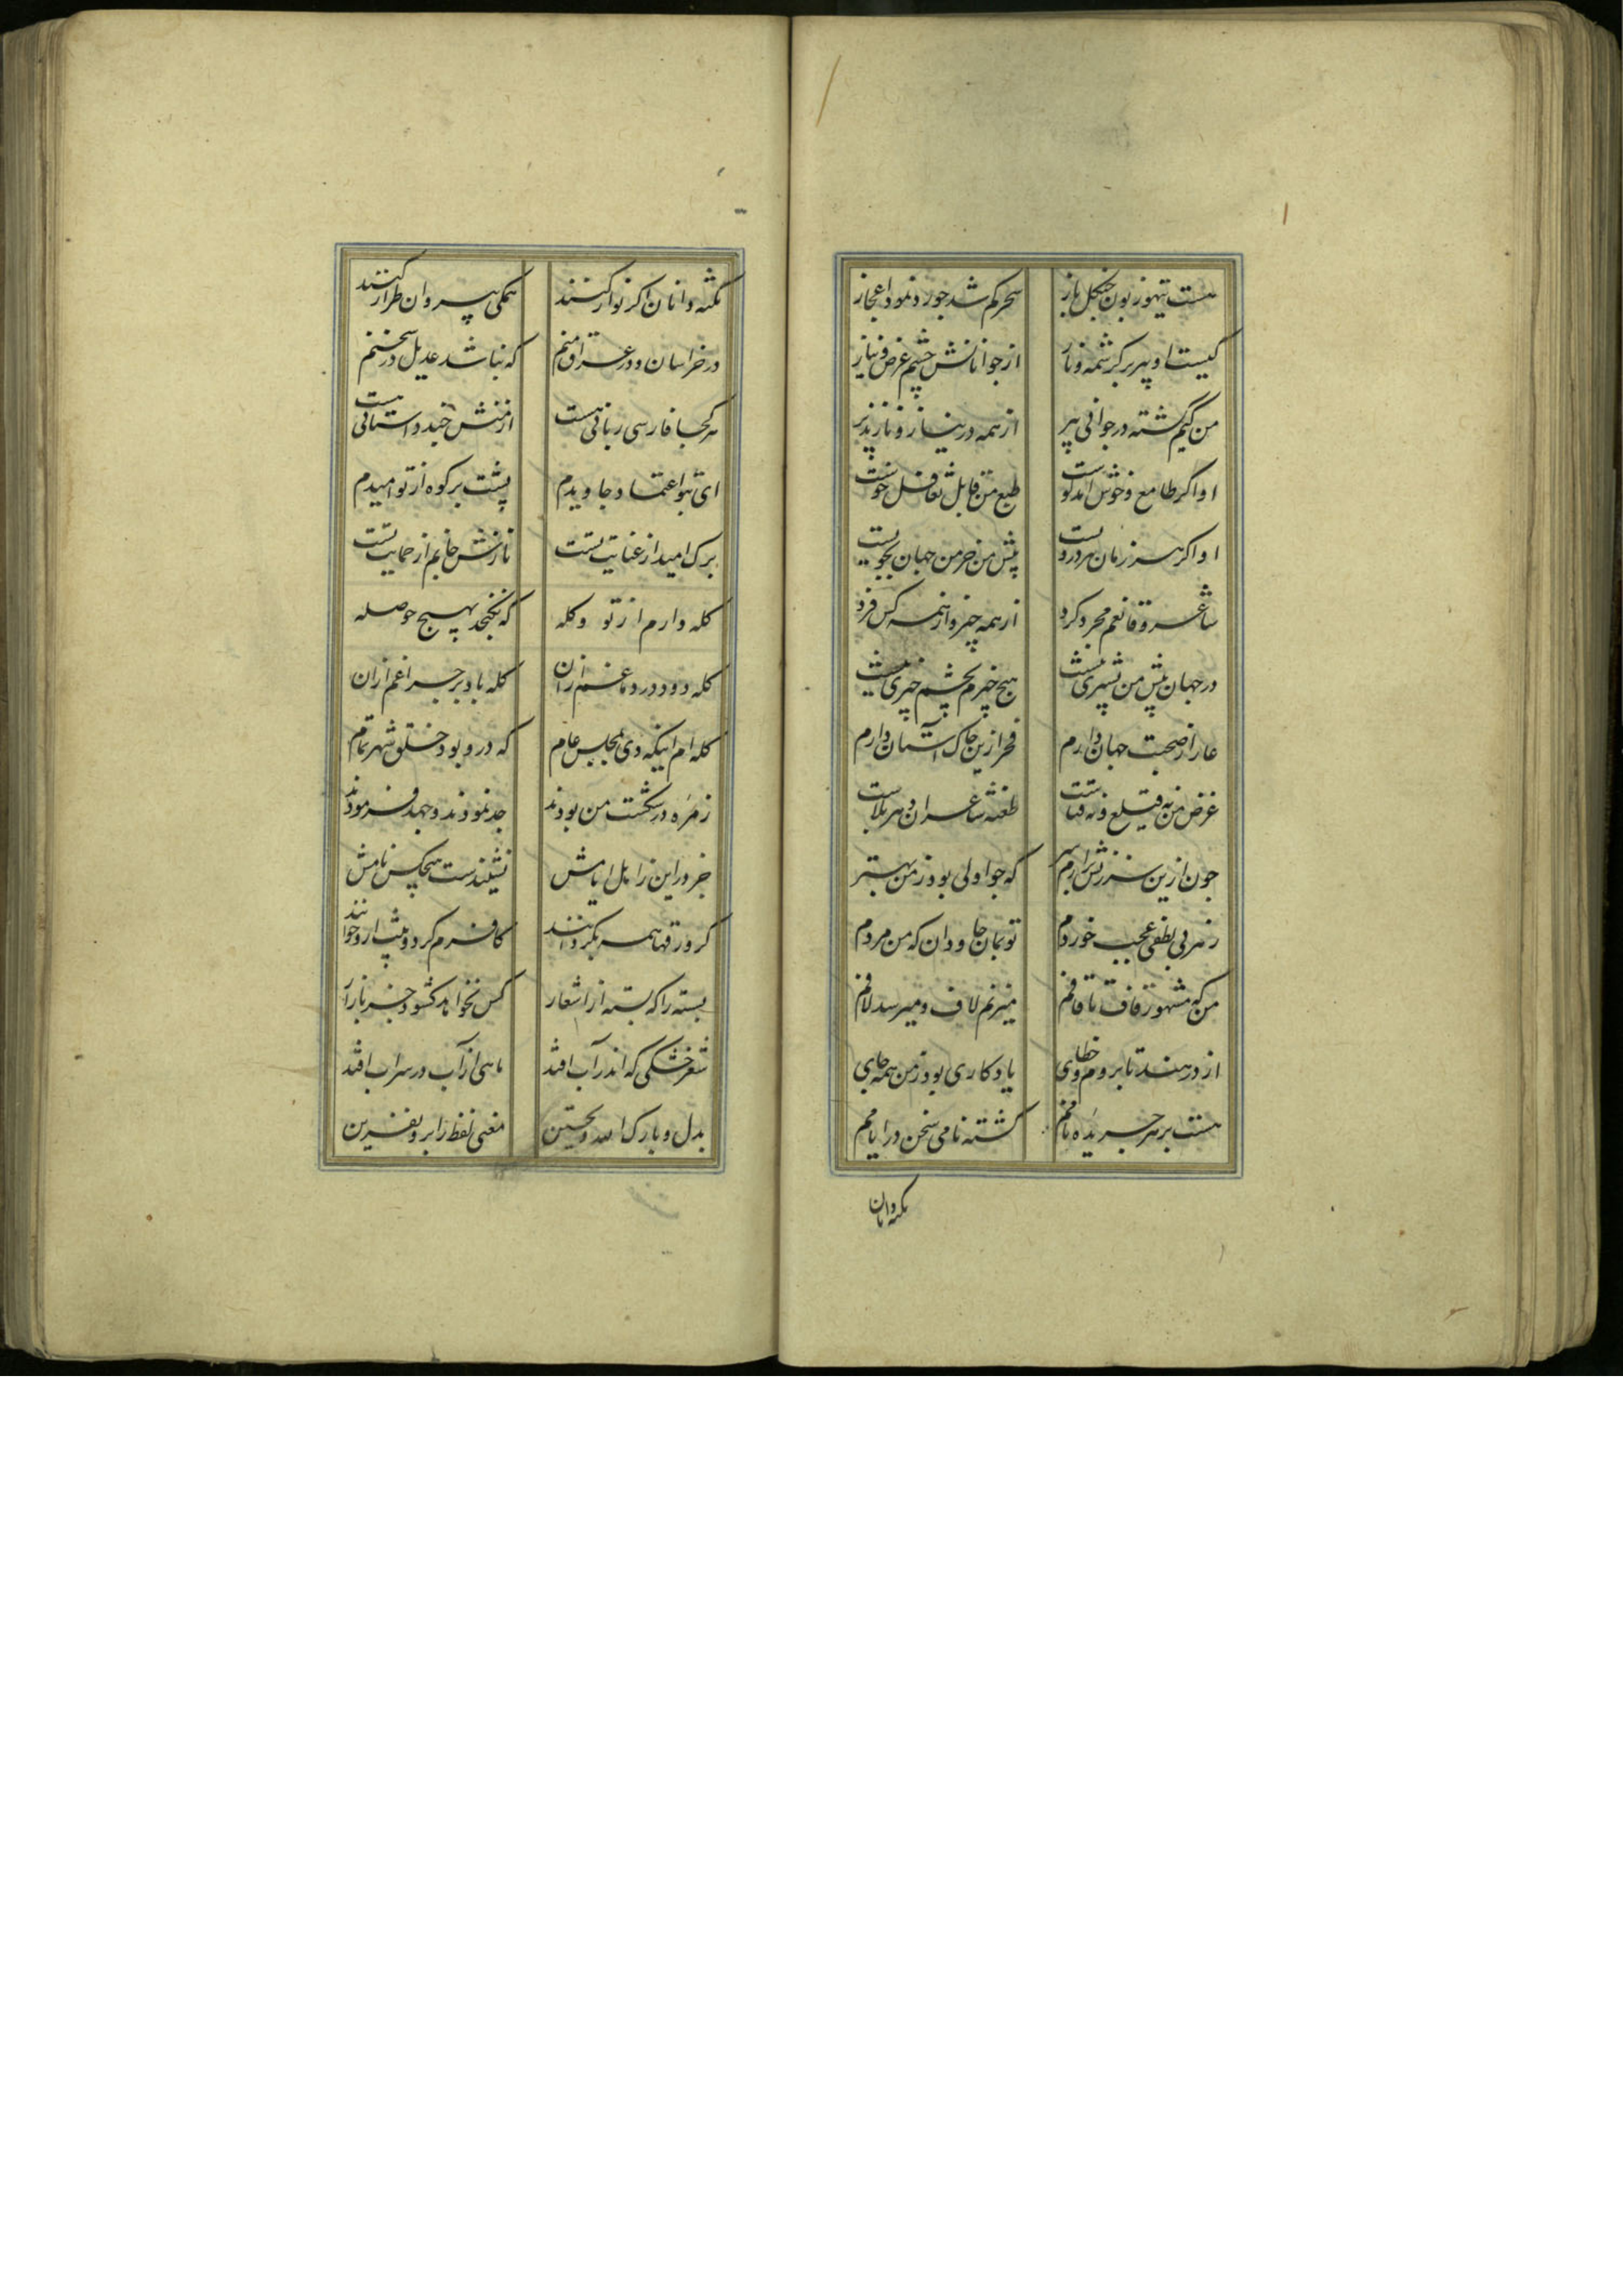 هست تیهو زبون چنگل باز سحر کم شد چو رو نمود اعجاز
کیست او پیر پر کرشمه و ناز از جوانانش چشم غرض نیاز
من کیم گشته در جوانی پیر از همه در نیاز و ناز پذیر
او اگر طامع و خوش آمد گوست طبع من قابل تغافل خوست
او اگر هرزمان بهر درویست پیش من خرمن جهان بجویست
شاعر و قانعم مجرد کرد از همه چیز و از همه کس فرد
در جهان پیش من پشیزی نیست هیچ چیزم بچشم چیزی نیست
عار از صحبت جهان دارم فخر ازین خاک آستان دارم
غرض من نه قیلع و نه قباست طعنهٔ شاعران دهر بلاست
چون ازین سرزنش برارم سر که جو اولی بود ز من بهتر
زهر بی لطفی عجب خوردم تو بمان جاودان که من مردم
من که مشهور قاف تا قافم میزنم لاف و میرسد لافم
از در هند تا بروم و خطای یادکاری بود ز من همه جای
هست بر هر جریده نامم گشته نامی سخن در ایامم
نکته دانان
نکته دانان اگر نوا کنند همگی پیروان طرار کنند
در خراسان و در عراق منم که نباشد عدیل در سخنم
هر کجا فارسی زبانی هست از منش چند داستانی هست
ای بتو اعتماد جاویدم پشت بر کوه از تو امیدم
برک امید از عنایت تست نازش جانم از حمایت تست
کله دارم از تو و کله که نکنجد بهیچ حوصله
کله دود در دماغم ازان کله باد بر چراغم ازان
کله ام اینکه دی بمجلس عام که درو بود خلق شهر تمام
زمره در شکست من بودند جد نمودند و جهد فرمودند
جز در این زابل ایامش نشنیدست هیچکس نامش
کر ورقها همه بکردانند کافرم کر دو بیت ازو خوانند
بسته را که بسته از اشعار کس نخواهد کشود جز بازار
شعر خشکی که اندر آب افتد ماهی از آب در سراب افتد
بدل بارک الله و تحسین معنی لفظ زا برو نفرین